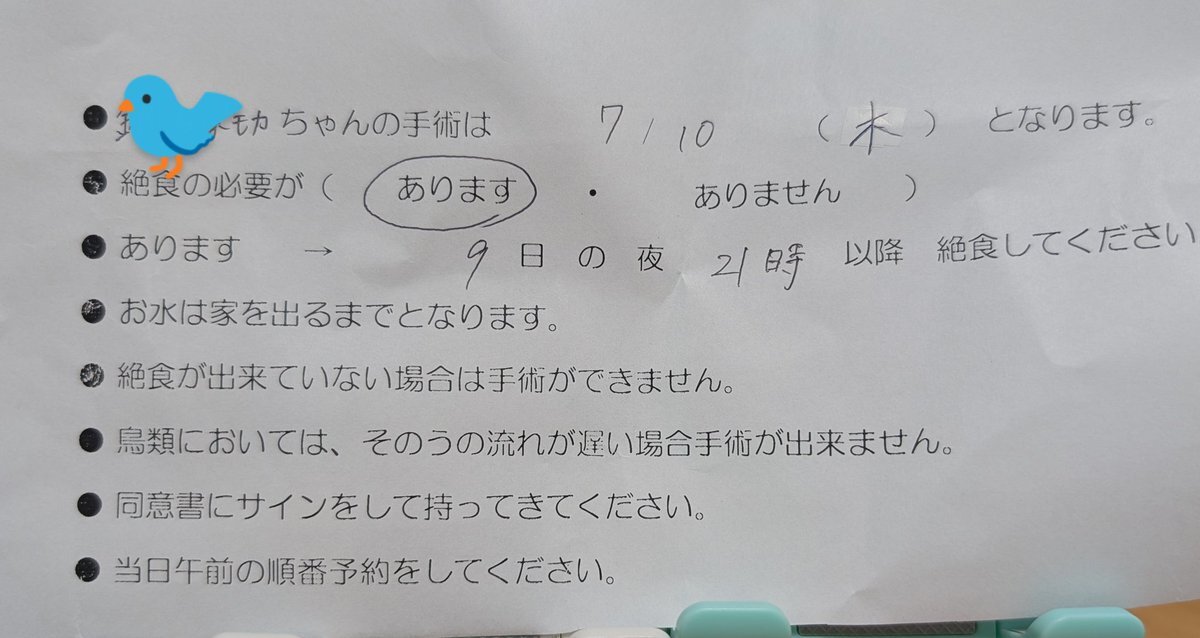 ﾓｶ ちゃんの手術は 7/10 （木） となります。
絶食の必要が（ あります ・ ありません ）
あります → 9日の夜 21時 以降 絶食してください
お水は家を出るまでとなります。
絶食が出来ていない場合は手術ができません。
鳥類においては、そのうの流れが遅い場合手術が出来ません。
同意書にサインをして持ってきてください。
当日午前の順番予約をしてください。